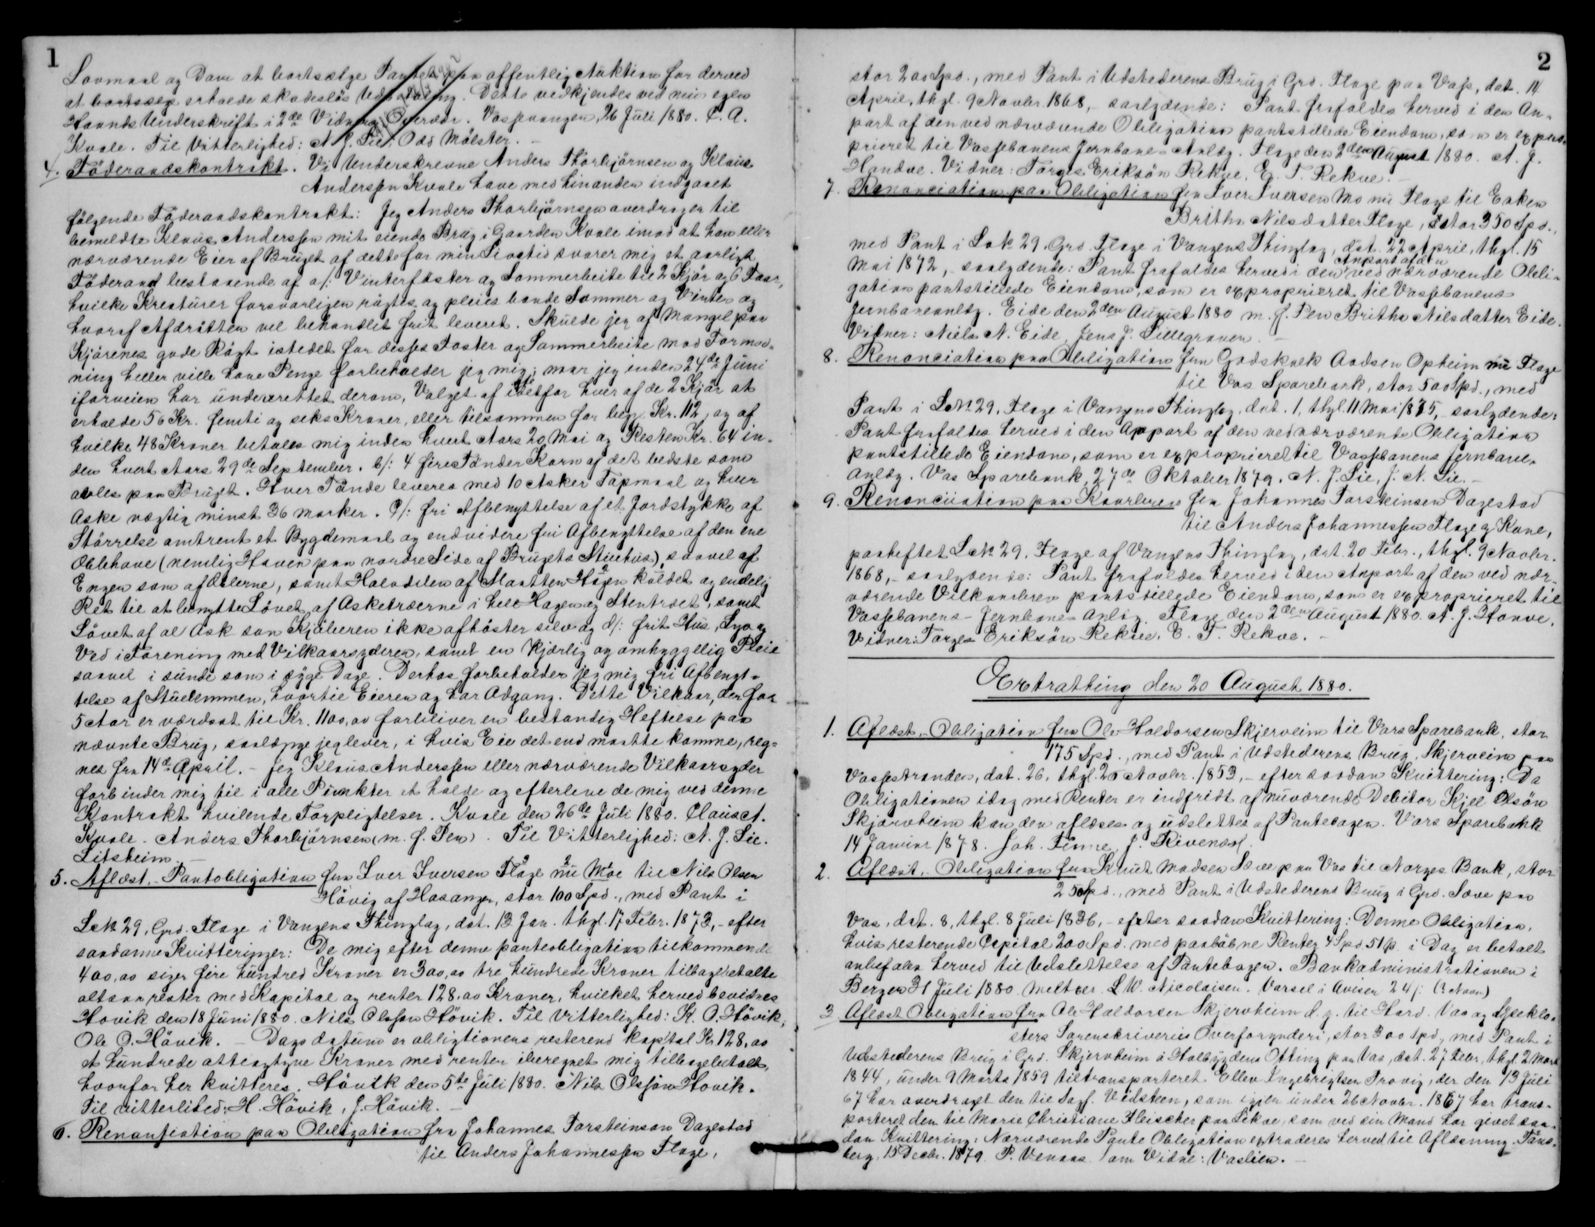 1
Lovmaal og Dom at bortsælge Pantet paa offentlig Auktion for derved
at bortsælge erholde skadesløs Udbetaling. Dette vedkjendes ved min egen
Haands Underskrift i 2de Vidners Overvær. Vossevangen, 26 Juli 1880. C. A.
Kvale. Til Vitterlighed: N. J. Lie, Odd Mølster. -
4. Föderaadskontrakt. Vi Underskrevne Anders Thorbjörnsen og Klaus
Anderssen Kvale have med hinanden indgaaet
følgende Föderaadskontrakt: Jeg Anders Thorbjörnsen overdrager til
bemeldte Klaus Anderssen mit eiende Brug i Gaarden Kvale imod at han eller
nærværende Eier af Bruget af dette for min Livstid svarer mig et aarligt
Föderaad bestaaende af a/: Vinterfoster og Sommerbeite til 2 Kjör og 6 Faar,
hvilke Kreaturer forsvarligen røgtes og pleies baade Sommer og Vinter og
hvoraf Afdraatten vel behandlet frit leveret. Skulde jeg af Mangel paa
Kjörenes gode Rögt istedet for disses Foster og Sommerbeite mod Formod-
ning heller ville have Penge forbeholder jeg mig, naar jeg inden 24de Juni
iforveien har underrettet derom, Valget af istedfor hver af de 2 Kjör at
erholde 56 Kr. femti og seks Kroner, eller tilsammen for begge Kr. 112, og af
hvilke 48 Kroner betales mig inden hvert Aars 20 Mai og Resten Kr. 64 in-
den hvert Aars 29de September. b/: 4 fire Tønder Korn af det bedste som
avles paa Bruget. Hver Tønde leveres med 10 Asker Tapmaal og hver
Aske vægtig mindst 36 marker. c/: fri Afbenyttelse af et Jordstykke af
Størrelse omtrent et Bygdemaal og endvidere fri Afbenyttelse af den ene
Æblehave (nemlig Haven paa nordre Side af Brugets Stuehus), saavel af
Engen som af Æblerne, samt Halvdelen af Slaatten Hagen kaldet og endelig
Ret til at benytte Løvet af Asketræerne i hele Hagen og Stentræet, samt
Løvet af al Ask som Kjøberen ikke afhøster selv og d/: frit Hus, Lys og
Ved i Forening med Vilkaarsyderen, samt en kjærlig og omhyggelig Pleie
saavel i sunde som i syge Dage. Derhos forbeholder jeg mig fri Afbenyt-
telse af Stuelemmen, hvortil Eieren og har Adgang. Dette Vilkaar, der for
5 Aar er værdsat til Kr. 1100,00 forbliver en bestandig Heftelse paa
nævnte Brug, saalænge jeg lever, i hvis Eie det end maatte komme, reg-
nes fra 14de April. - Jeg Klaus Anderssen eller nærværende Vilkaarsyder
forbinder mig til i alle Punkter at holde og efterleve de mig ved denne
Kontrakt hvilende Forpligtelser. Kvale den 26de Juli 1880. Claus A.
Kvale. Anders Thorbjörnsen (m. f. Pen). Til Vitterlighed: N. J. Lie.
Litsheim. -
5. Aflæst. Pantobligation fra Iver Iversen Fløge nu Moe til Nils Olsen
Hövig af Hosanger, stor 100 Spd., med Pant i
L№ 29, Grd. Flage i Vangens Thinglag, dat. 13 Jan. thgl. 17 Febr. 1873, - efter
saadanne Kvitteringer: De mig efter denne panteobligation tilkommende
400,00 siger fire hundred Kroner er 300,00 tre hundrede Kroner tilbagebetalte
altsaa rester med Kapital og renter 128,00 Kroner, hvilket herved bevidnes
Hovik den 18 Juni 1880. Nils Olsson Hövik. Til Vitterlighed: K. O. Hövik,
Ole O. Hövik. - Dags datum er obligationens resterend kapital Kr 128,00
et hundrede otteogtyve Kroner med renter iberegnet mig tilbagebetalt,
hvorfor her kvitteres. Hövik den 5te Juli 1880. Nils Olsson Hovik.
Til vitterlihed: H. Hövik, J. Hövik. -
6. Renunsiation paa Obligation fra Johannes Torsteinson Dagestad
til Anders Johannessen Flage,
2
stor 200 Spd., med Pant i Udstederens Brug i Grd. Flage paa Voss, dat. 14
April, thgl. 9 Novbr 1868, - saalydende: Pant frafaldes herved i den An-
part af den ved nærværende Obligation pantstillede Eiendom, som er expro-
prieret til Vossebanens Jernbane-Anlæg. Flage den 2den August 1880. A. J.
Honve. Vidner: Torges Eriksön Rekve, E. T. Rekve. -
7. Renonciation paa Obligation fra Iver Iversen Mo nu Flage til Enken
Britha Nilsdatter Flage, stor 350 Spd.,
med Pant i L№ 29 Grd. Flage i Vangens Thinglag, dat. 22 April, thgl. 15
Mai 1872, saalydende: Pant frafaldes herved i den Anpart af den ved nærværende Obli-
gation pantstillede Eiendom, som er exproprieret til Vossebanens
Jernbaneanlæg. Eide den 2den August 1880 m. f. Pen Britha Nilsdatter Eide.
Vidner: Niels N. Eide, Jens J. Lillegraven. -
8. Renonciation paa Obligation fra Godskalk Aadsen Opheim nu Flage
til Vos Sparebank, stor 500 Spd., med
Pant i L№ 29, Flage i Vangens Thinglag, dat. 1, thgl. 11 Mai 1875, - saalydende:
Pant frafaldes herved i den Anpart af den ved nærværende Obligation
pantstillede Eiendom, som er exproprieret til Vossebanens Jernbane-
anlæg. Vos Sparebank, 27de Oktober 1879. N. J. Lie, J. N. Lie. -
9. Renonciation paa Kaarbrev fra Johannes Torsteinsen Dagestad
til Anders Johannessen Flage og Kone,
paaheftet L№ 29. Flage af Vangens Thinglag, dat. 20 Febr., thgl. 9 Novbr.
1868, - saalydende: Pant frafaldes herved i den Anpart af den ved nær-
værende Vilkaarsbrev pantstillede Eiendom, som er exproprieret til
Vossebanens Jernbane Anlæg. Flage den 2den August 1880. A. J. Honve.
Vidner: Torges Eriksön Rekve, E. T. Rekve. -
Extratting den 20 August 1880.
1. Aflæst. Obligation fra Ole Haldorsen Skjerveim til Vors Sparebank, stor
175 Spd., med Pant i Udstederens Brug, Skjerveim paa
Vossestranden, dat. 26, thgl. 20 Novbr. 1853, - efter saadan Kvittering: Da
Obligationen idag med Renter er indfridt af nuværende Debitor Kjel Olsön
Skjærvheim kan den aflæses og udslettes af Pantebogen. Vors Sparebank
14 Januar 1878. Joh. Finne, J. Rivenæs.
2. Aflæst. Obligation fra Knud Madsen Sæve paa Vos til Norges Bank, stor
250 Spd., med Pant i Udstederens Brug i Grd. Sæve paa
Vos, dat. 8, thgl. 8 Juli 1836, - efter saadan Kvittering: Denne Obligation,
hvis resterende Capital 200 Spd. med paaløbne Renter 4 Spd 51 β i Dag er betalt
anbefales herved til Udslettelse af Pantebogen. Bankadministrationen i
Bergen 31 Juli 1880. Meltzer. L W. Nicolaisen. Varsel i Avisen 24/:
3 Aflæst Obligation fra Ole Haldorsen Skjerveim d. y. til Hard. Vos og Lysekloe-
sters Sorenskriveries Overformynderi, stor 300 Spd, med Pant i
Udstederens Brug i Grd. Skjervheim i Holbygdens Otting paa Vos, dat. 27 Febr., thgl. 2 Marts
1844, under 9 Marts 1859 tiltransporteret Ellen Ingebrigtsen Trovig, der den 13 Juli
67 har overdraget den til Sagf. Vedskou, som igjen under 26 Novbr. 1867 har trans-
porteret den til Marie Christiane Fleischer paa Lekve, som ved sin Mand har givet saa-
dan Kvittering: Nærværende Pante Obligation extraderes herved til Aflæsning. Töns-
berg, 15 Decbr. 1879. P. Venaas. som Vidne: Vaslien. -